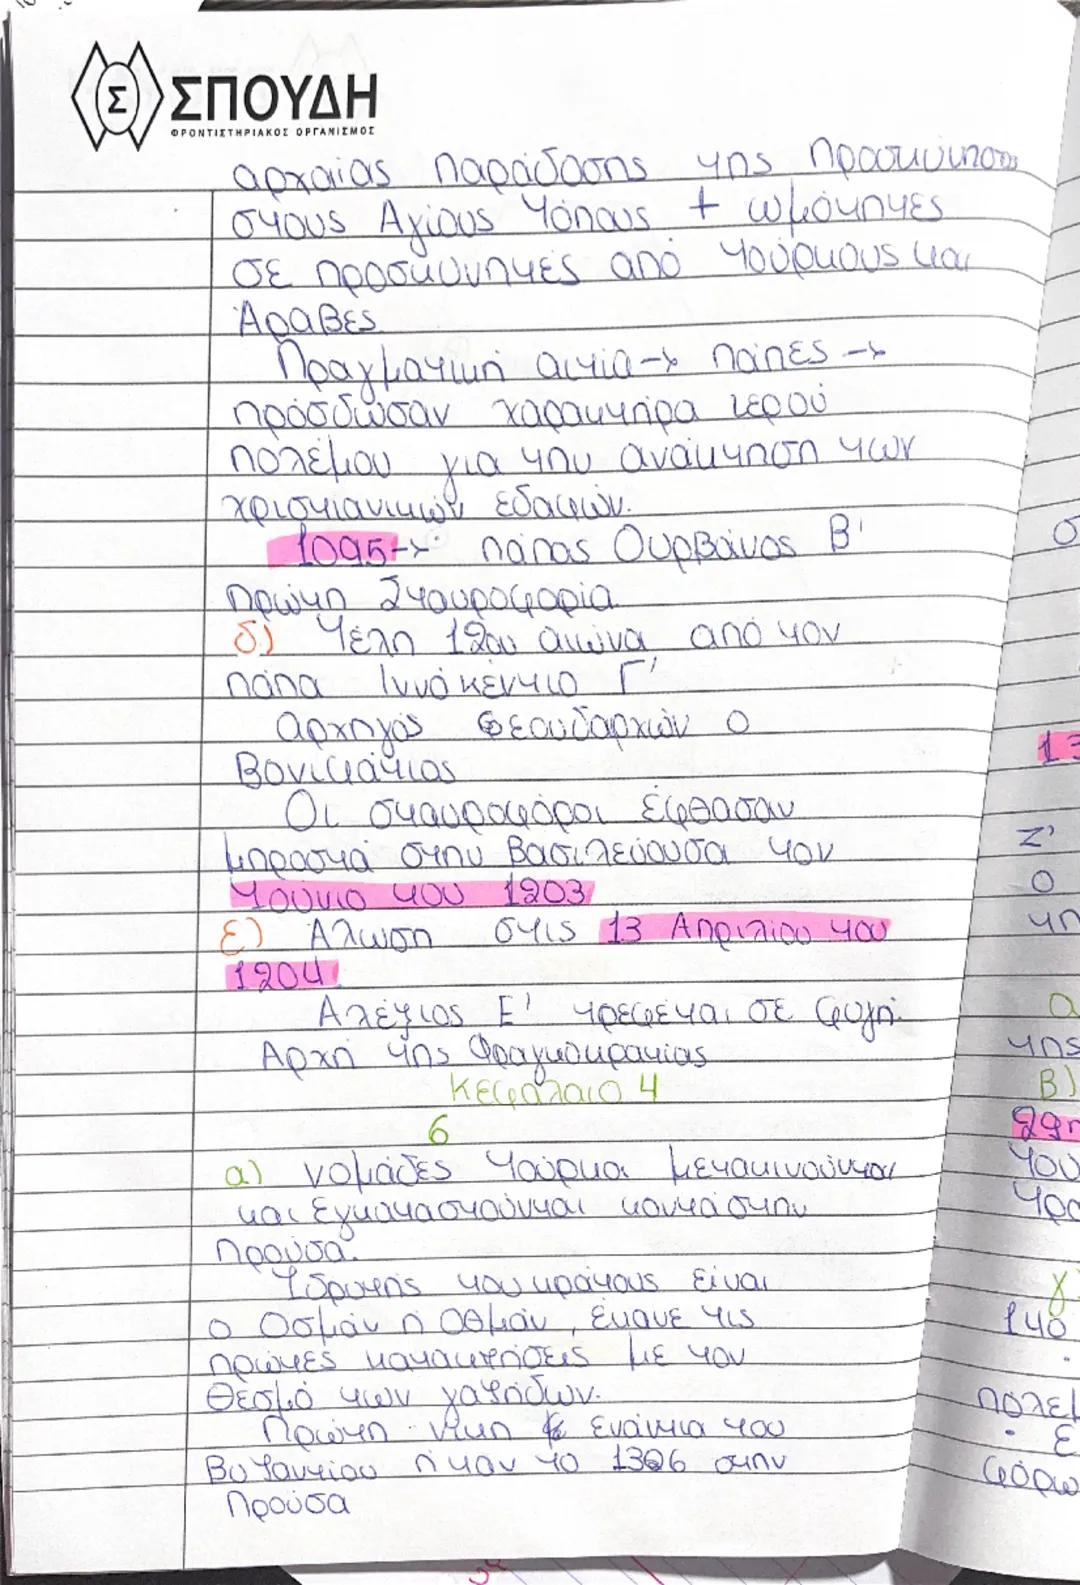 Σ ΣΠΟΥΔΗ
ΦΡΟΝΤΙΣΤΗΡΙΑΚΟΣ ΟΡΓΑΝΙΣΜΟΣ
αρχαίας παράδοσης της προσκύνησης
στους Αγίους τόπους + ωμότητες
σε προσκυνητές από τούρκους και
Άραβες
Πραγματική αιτία → πάπες →
πρόσδωσαν χαρακτήρα ιερού
πολέμου για την ανάκτηση των
χριστιανικών εδαφών.
1095 → πάπας Ουρβάνος Β'
πρώτη Σταυροφορία
δ) τέλη 12ου αιώνα από τον
πάπα Ιννόκέντιο Γ'
αρχηγός φεουδαρχών ο
Βονιφάτιος
Οι σταυροφόροι έφθασαν
μπροστά στην Βασιλεύουσα τον
Ιούνιο του 1203
ε) Άλωση στις 13 Απριλίου του
1204
Αλέξιος Ε' τρέφεται σε φυγή.
Αρχή της Φραγκοκρατίας
Κεφάλαιο 4
6
α) νομάδες τούρκοι μετακινούνται
και εγκαταστούνται κοντά στην
Προύσα.
Ιδρυτής του κράτους είναι
ο Οσμάν ή Οθμάν, έκανε τις
πρώτες κατακτήσεις με τον
θεσμό των γαζήδων.
Πρώτη νίκη ενάντια του
Βυζαντίου ήταν το 1306 στην
Προύσα
13
Ζ'
ο
τη
α
της
Β)
29η
του
γ
140
πολεμ
ε
φόρω